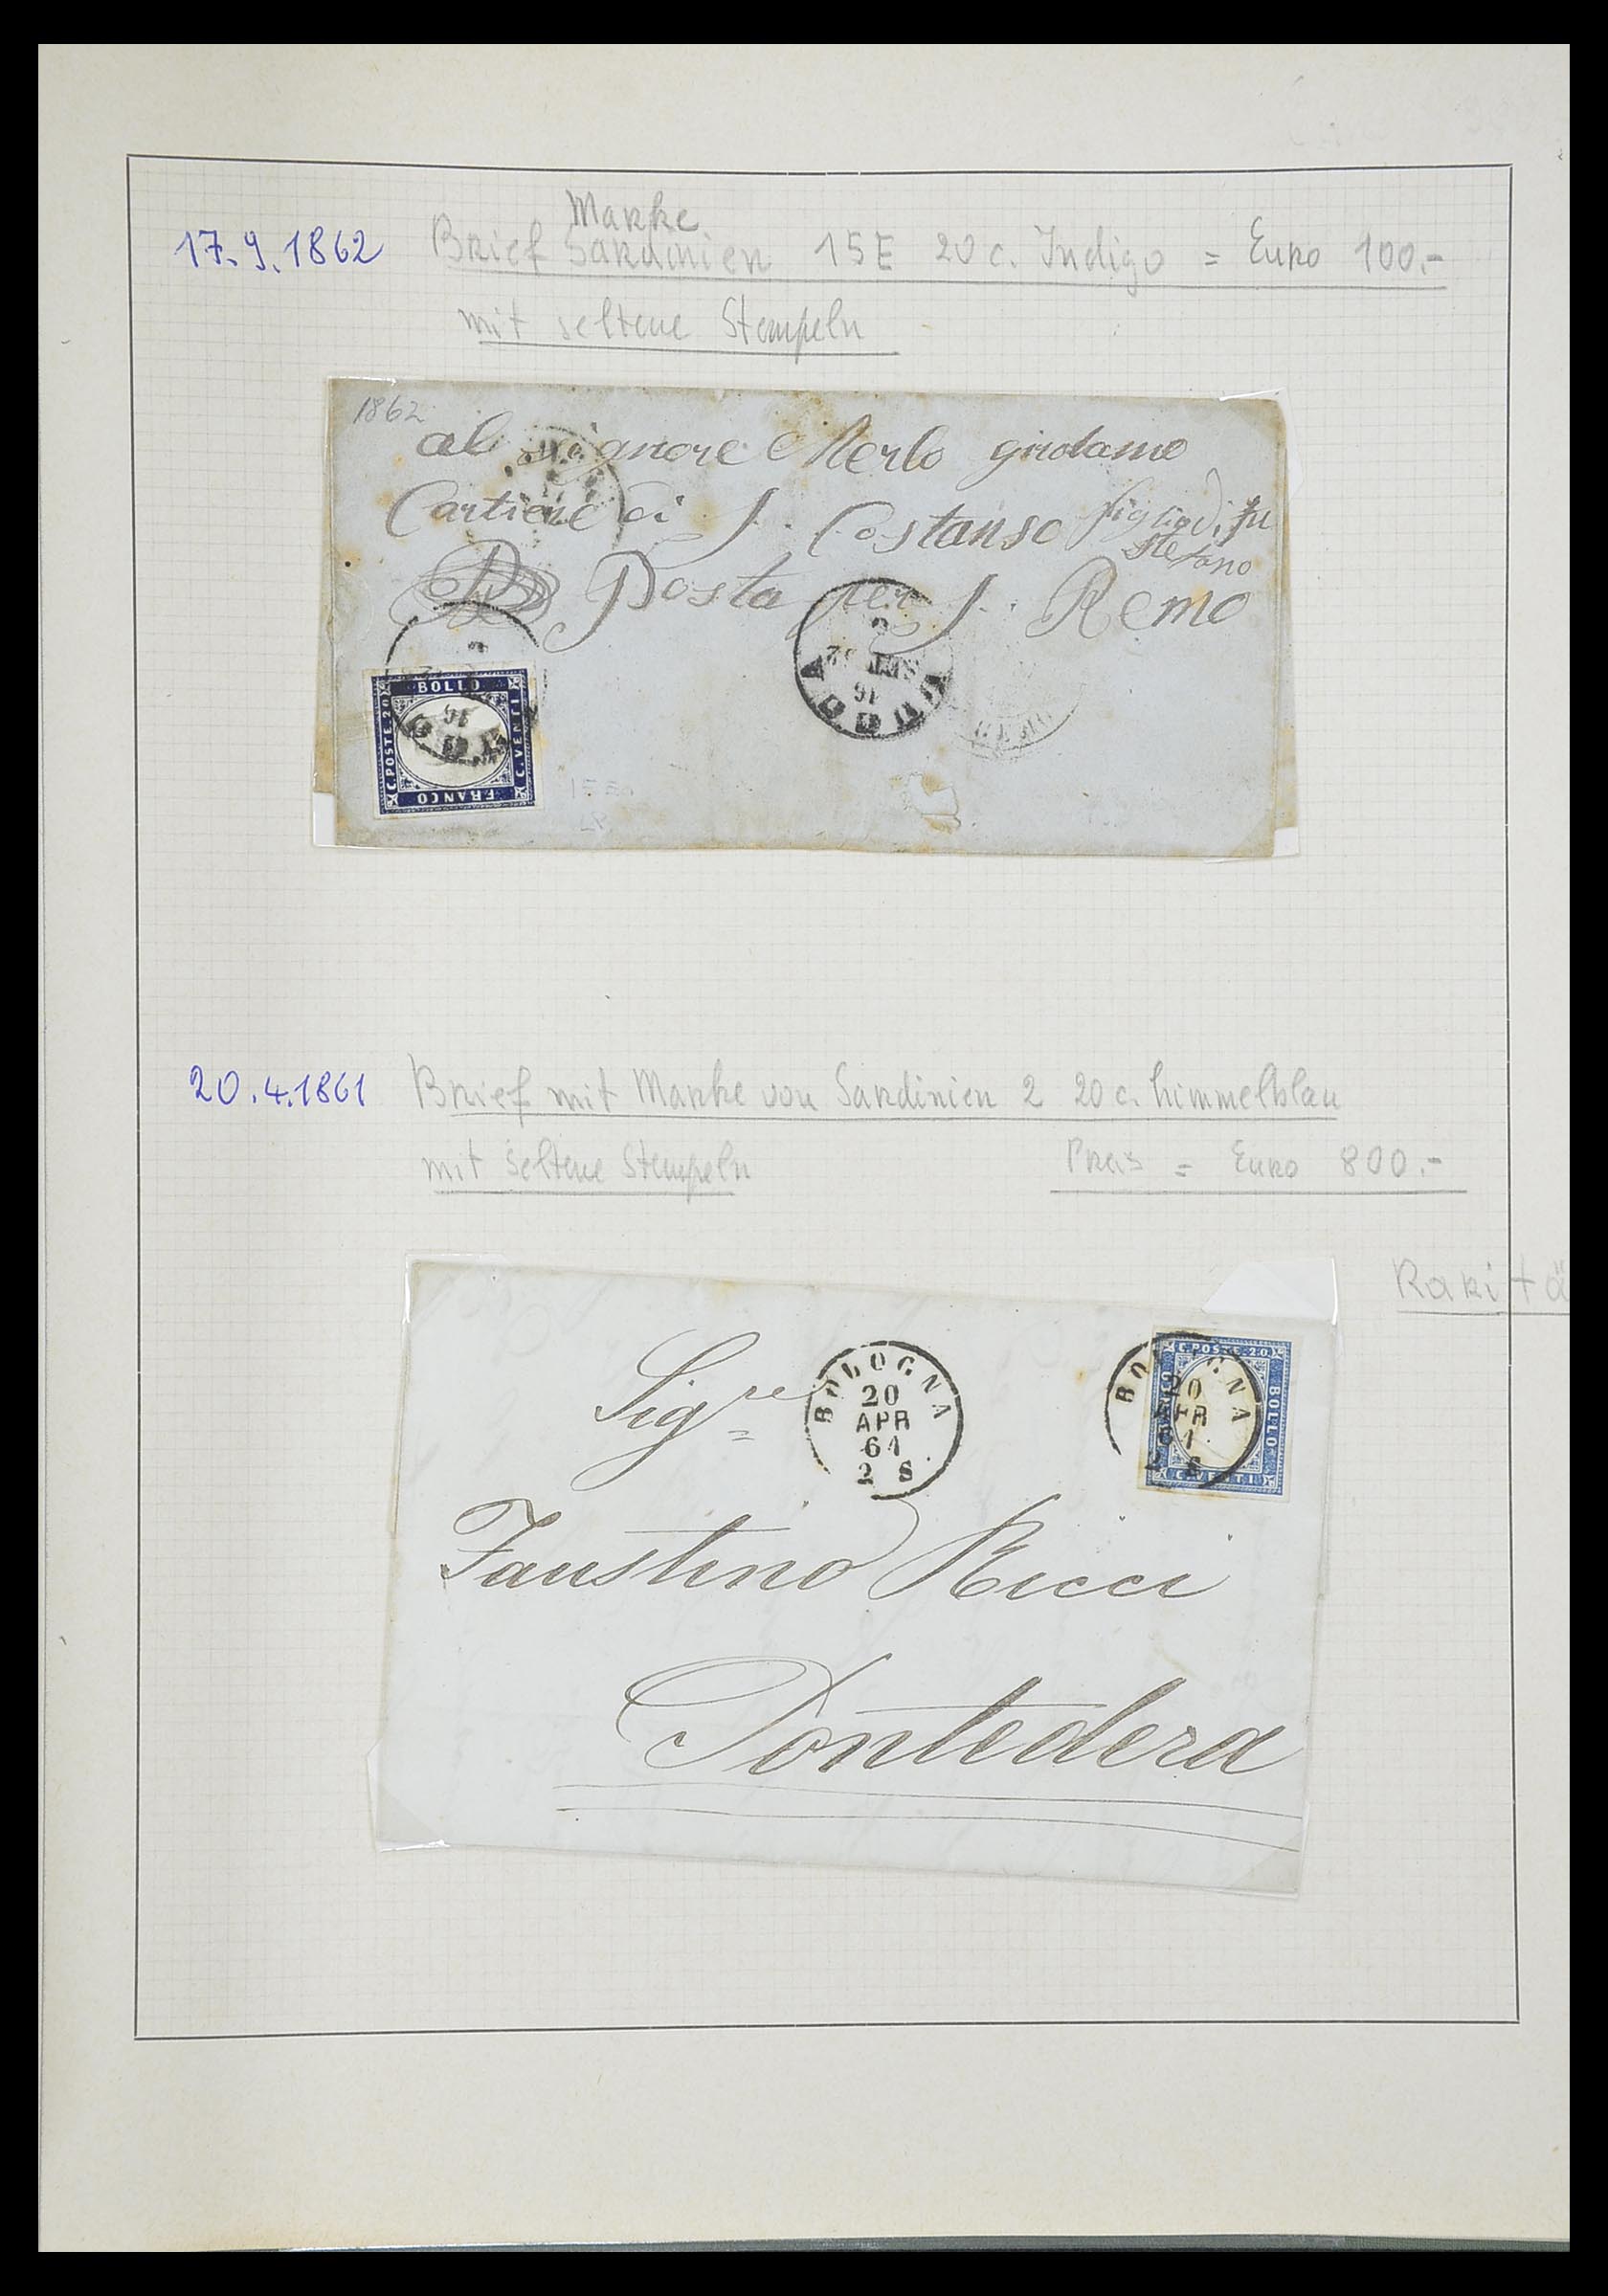 17.9.1862 Brief Marke Sardinien 15E 20 c. Indigo = Euro 100.-
mit seltene Stempeln
1862
al Signore Merlo girolamo
Cartiere di S. Costanso figlio di fu
Stefano
Posta per S. Remo
SET 62
16
BOLLO
C. POSTE. 20
C. VENTI
FRANCO
15E
20.4.1861 Brief mit Marke von Sardinien 2 20 c. himmelblau
mit seltene Stempeln Preis = Euro 800.-
Raritä
Sigre
BOLOGNA
20
APR
61
2 S
BOLOGNA
20
APR
61
2 S
C. POSTE. 20
BOLLO
C. VENTI
Faustino Ricci
Pontedera